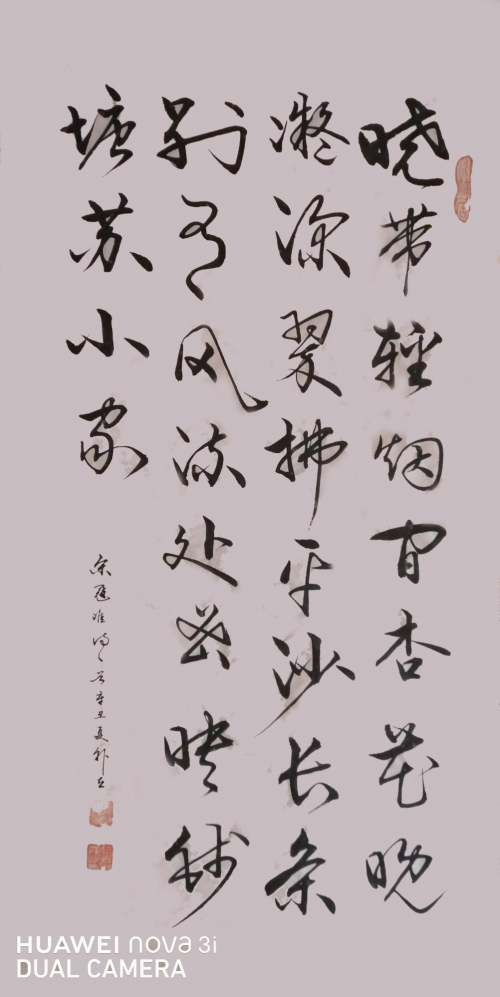 晓带轻烟间杏花晚
凝深翠拂平沙长条
别有风流处密映钱
塘苏小家
宋寇准诗 辛丑夏
HUAWEI nova 3i
DUAL CAMERA